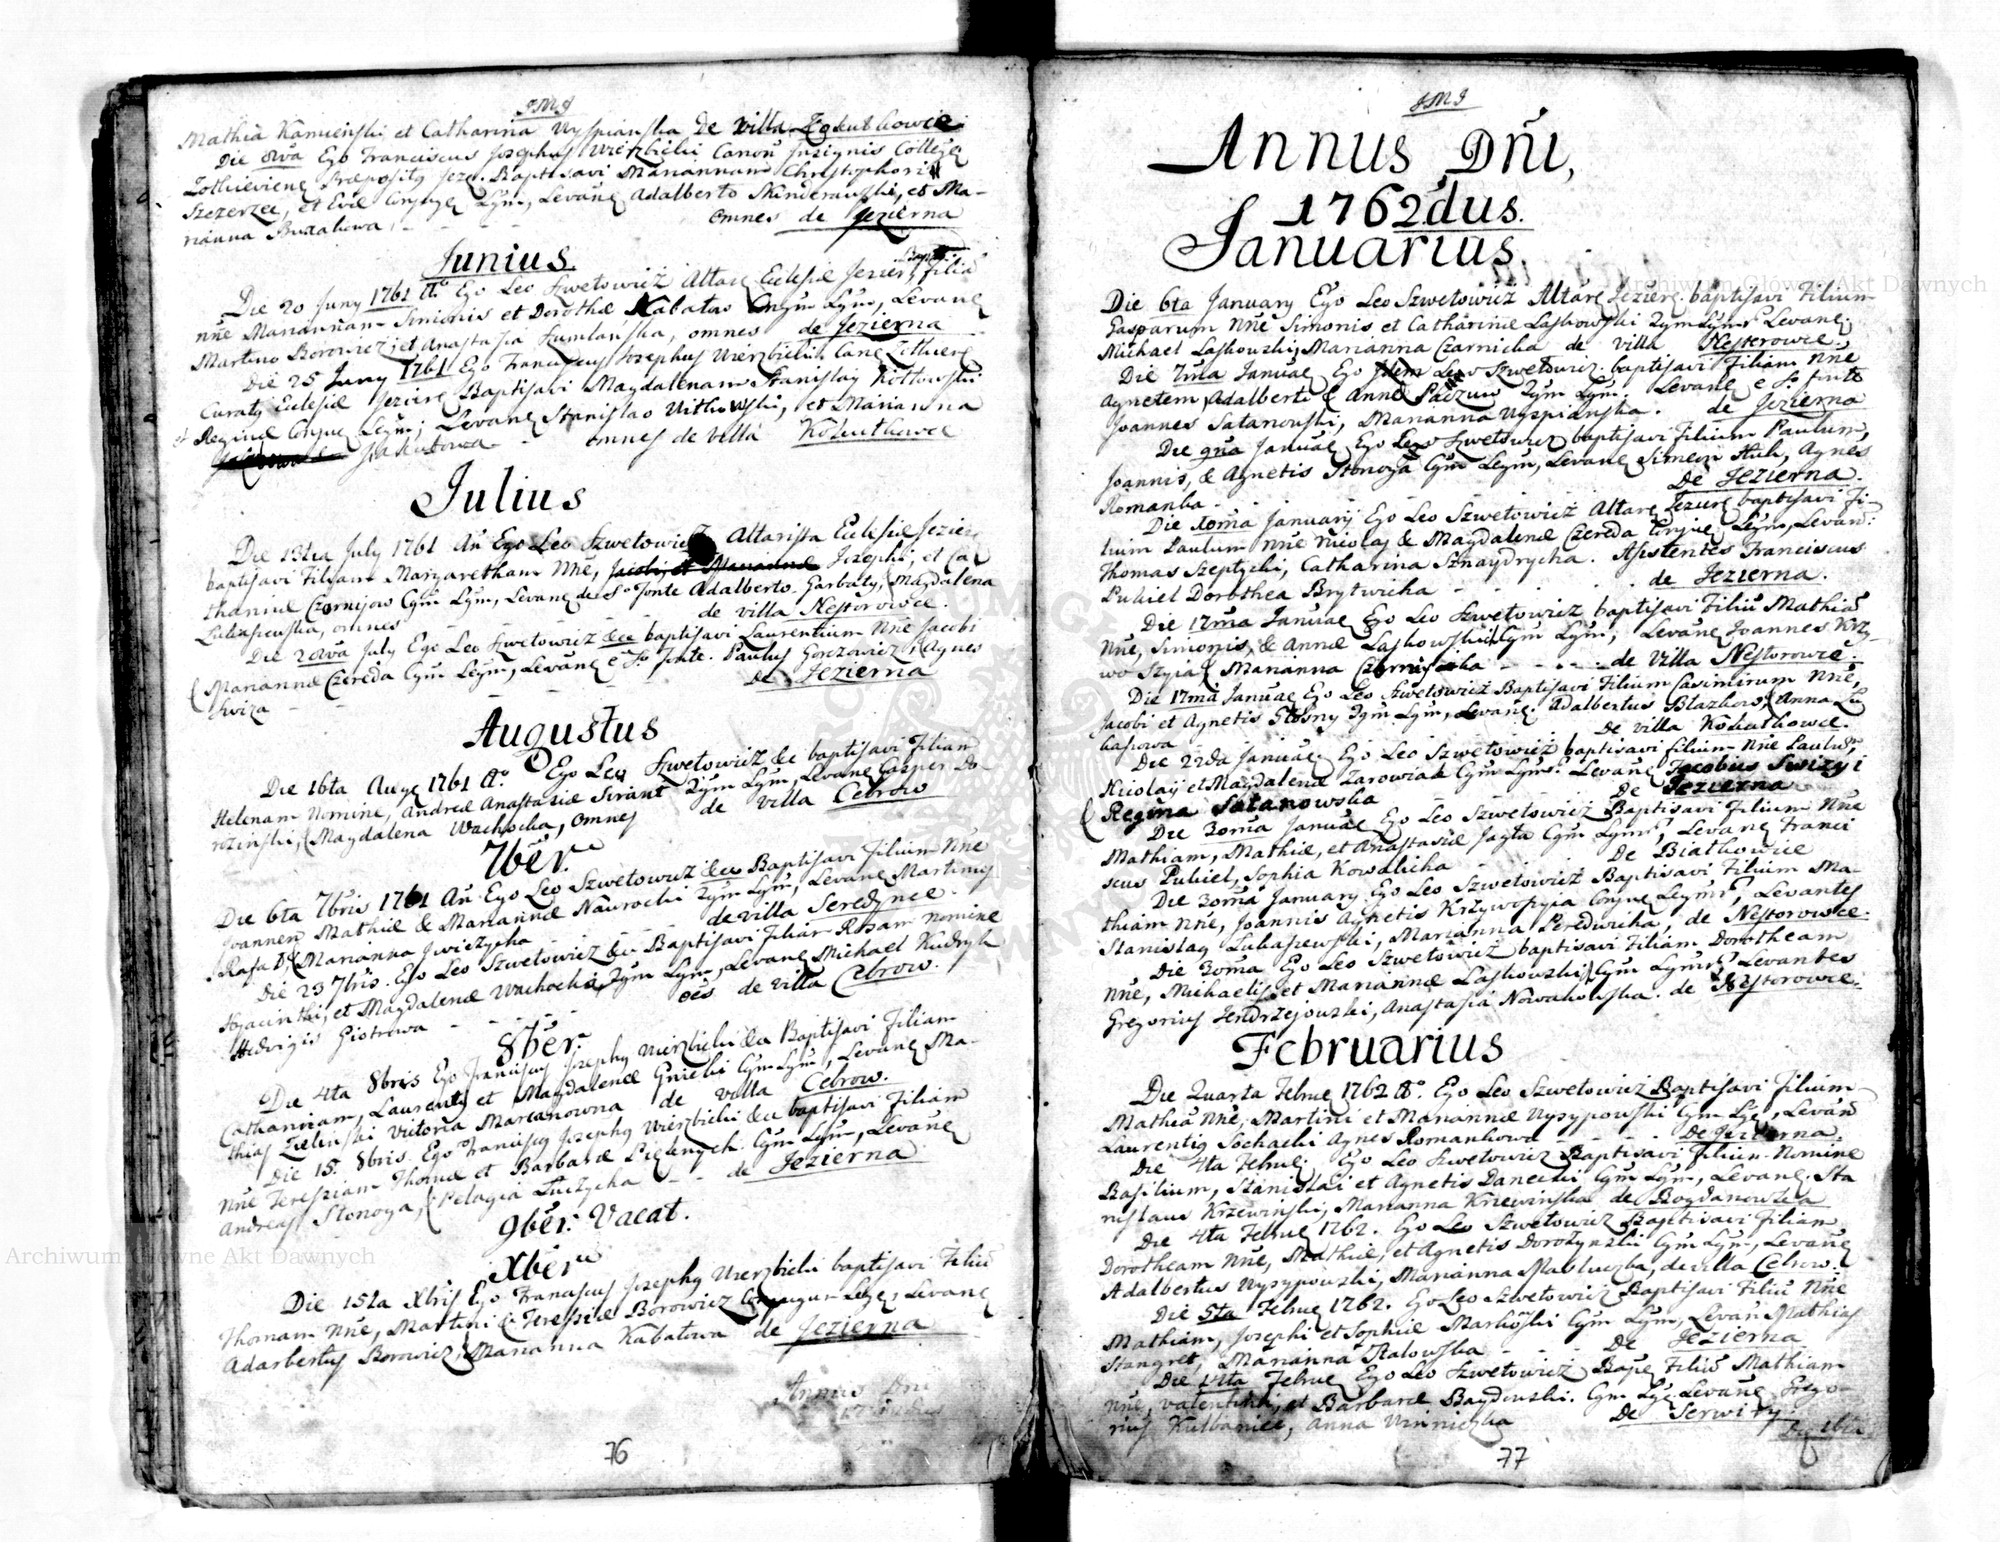 JMJ
Mathia Kamienski et Catharina Wyspianska De villa
Die 8va Ego Franciscus Josephus Wierzbicki Canon Insignis Colleg
Præposity Jeze. Baptisavi Mariannam Christophori
Szczerzec, et Evæ Conjuge Lgm, Levane Adalberto et Ma-
rianna Budakowa omnes de Jezierna
Junius.
Die 20 Juny 1761 Ao Ego Leo Szwetowicz Altare Eclesiæ Jezier, filia
nne Mariannam Simionis et Dorothæ Kabatow Cngm Lgm, Levane
Martino Borowicz, et Anastasia Szumlanska, omnes de Jezierna
Die 25 Juny 1761 Ego Franciscus Josephus Wierzbickih
Curaty Eclesiæ Jeziere Baptisavi Magdalenam Stanislay Kottowski
et Reginæ Conjue Legm; Levane Stanislao Witkowski, et Marianna
omnes de villa Kozuthowce
Julius
Die 13tia July 1761 An Ego Leo Szwetowicz Altarista Eclesiæ Jezier
baptisavi Filiam Margaretham Nne, Jacobi et Mariannæ Jozephi, et Ca
thaninæ Czornijow Cgm Lgm, Levane de So fonte Adalberto Garbaty, Magdalena
Lukasiewska, omnes de villa Nestorowce.
Die 20va July Ego Leo Szwetowicz &ca baptisavi Laurentium Nne Jacobi
Mariannæ Czereda Cgm Legm, Levane e So fonte. Paulus Gonczowicz, Agnes
Swiza De Jezierna
Augustus
Die 16ta Auge 1761 Ao Ego Leo Szwetowicz &c baptisavi Filiam
Helenam Nomine, Andreæ Anastasiæ Sirant Cgm Lgm, Levane Casper Do-
rozinski, Magdalena Wachocka, omnes de villa Cebrow
7ber.
Die 6ta 7bris 1761 An Ego Leo Szwetowicz &ca Baptisavi Filium Nne
Joannem Mathiæ & Mariannæ Nawrocki Cgm Lgm, Levane Martinus
Rafa, Marianna de villa Seredynce.
Die 23 7bris. Ego Leo Szwetowicz &c Baptisavi Filiam Rosam nomine
Hyacinthi, et Magdalenæ Wachocki, Cgm Lgm, Levane Michael Kudryk
Hedvigis Piotrowa oes de villa Cebrow.
8ber.
Die 4ta 8bris Ego Franciscus Josephus Wierzbicki &ca Baptisavi Filiam
Cathaniam, Laurenty et Magdalenæ Gnicki Cgm Lgm, Levane Ma-
thias Zielinski Victoria Marcianowna de villa Cebrow.
Die 15 8bris. Ego Franciscus Josephus Wierzbicki &ca baptisavi Filiam
nne Teressiam Thomæ et Barbaræ Cgm Lgm, Levane
Andreas Stonoga, Pelagia de Jezierna
9ber. Vacat.
Xber
Die 15ta Xbris Ego Franciscus Josephus Wierzbicki baptisavi Filiu
Thomam Nne, Martini & Teressiæ Borowicz Conjugu Lege, Levane
Adarbertus Borowicz, Marianna Kabatowa de Jezierna
Annus Dni
76
JMJ
Annus Dni,
1762dus.
Januarius.
Die 6ta January Ego Leo Szwetowicz Altare Jeziere. baptisavi Filium
Gasparum Nne Simonis et Catharinæ Laskowski Cgm Lgm Levane
Michael Laskowski, Marianna Czarnicka de villa Nestorowce.
Die 7ma Januae Ego Leo Szwetowicz. baptisavi Filiam Nne
Agnetem, Adalberti & Annæ Paczun Cgm Lgm. Levane e So fonte
Joannes Satanowski, Marianna Wyspianska. de Jezierna
Die 9na Januae Ego Leo Szwetowicz baptisavi Filium Paulum,
Joannis, & Agnetis Stonoga Cgm Legm, Levane Simeon Huk, Agnes
Romanka De Jezierna.
Die Xoma January Ego Leo Szwetowicz Altare Jeziere baptisavi Fi-
lium Paulum Nne Nicolaj & Magdalenæ Czereda Conjue Legm, Levan:
Thomas Szeptycki, Catharina Sznaydrycha. Asistentes Franciscus
Pukiel Dorothea Brytwicha de Jezierna.
Die 17ma Januae Ego Leo Szwetowicz baptisavi Filiu Mathia
Nne, Simonis, & Annæ Laskowski Cgm Lgm, Levane Joannes Krzy-
wo Szyia, Marianna Czarnicka de Villa Nestorowce.
Die 17ma Januae Ego Leo Szwetowicz Baptisavi Filium Casimirum Nne,
Jacobi et Agnetis Glosny Cgm Lgm, Levane. Adalbertus Blazkow, Anna Lu
kasowa De villa Kozuthowce.
Die 22da Januae Ego Leo Szwetowicz baptisavi filium Nne Paulu,
Nicolaij et Magdalenæ Zarowiak Cgm Lgm. Levane Jacobus Swizy i
Regina Satanowska De Jezierna
Die 30ma Januae Ego Leo Szwetowicz Baptisavi Filium Nne
Mathiam, Mathiæ, et Anastasiæ Jagta Cgm Lgm, Levane Franci
scus Pukiel, Sophia Kowalicha De Biatkowce
Die 30ma January. Ego Leo Szwetowicz Baptisavi Filium Ma-
thiam Nne, Joannis Agnetis Krzywopyia Conjue Legm, Levantes
Stanislay Lukasiewski, Marianna Peredwicha, de Nestorowce.
Die 30ma Ego Leo Szwetowicz baptisavi Filiam Dorotheam
Nne, Michaelis, et Mariannæ Laskowski, Cgm Lgm Levantes
Gregorius Jendrzejowski, Anastasia Nowakowska. de Nestorowce.
Februarius
Die Quarta Februe 1762 Ao. Ego Leo Szwetowicz Baptisavi Filium
Mathea Nne, Martini et Mariannæ Wysypowski Cgm Lge, Levan
Laurentig Sochacki Agnes Romankowa De Jezierna.
Die 4ta Februe. Ego Leo Szwetowicz Baptisavi Filium Nomine
Basilium, Stanislai et Agnetis Danecki Cgm Lgm, Levane. Sta
nislaus Krzewinski, Marianna Krzewinska de Bogdanowka
Die 4ta Februe 1762. Ego Leo Szwetowicz Baptisavi Filiam
Dorotheam Nne, Mathiæ, et Agnetis Dorozynski Cgm Lgm, Levane
Adalbertus Wysypowski, Marianna Masluczka, de villa Cebrow.
Die 5ta Februe 1762. Ego Leo Szwetowicz Baptisavi Filiu Nne
Mathiam, Josephi et Sophiæ Markoski Cgm Lgm, Levan Mathias
Stangret, Marianna Skalowska De Jezierna
Die 14ta Februe Ego Leo Szwetowicz Bape Filiu Mathiam
nne, Valentini, et Barbaræ Baydowski. Cgm Lge. Levane Grego-
rius Kulbanice, Anna Winniczka De Serwiry
Die 16ta
77
Archiwum Główne Akt Dawnych
Archiwum Główne Akt Dawnych